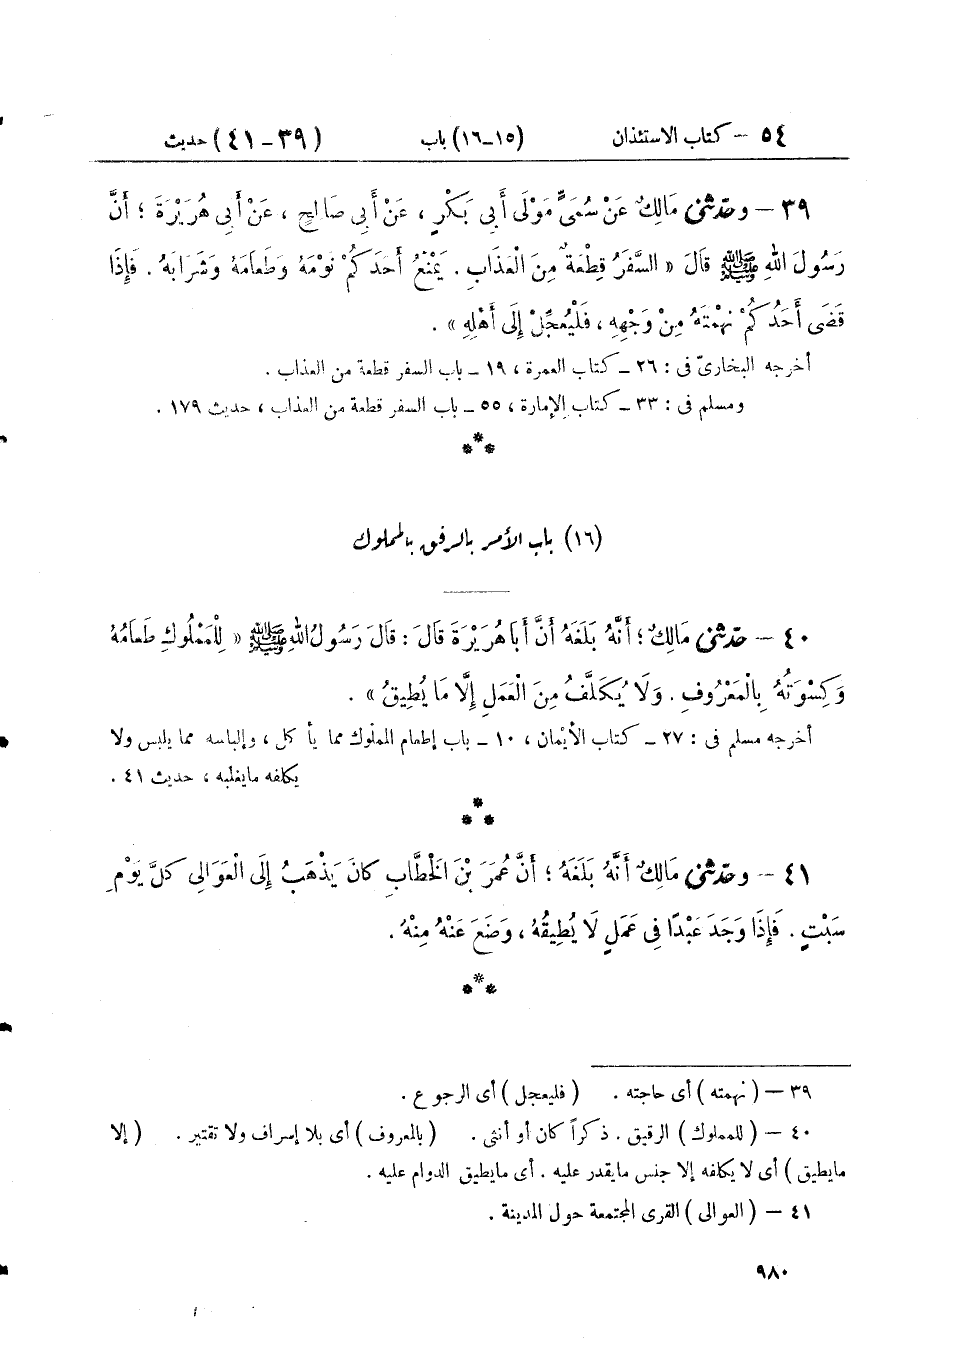 ٥٤ – كتاب الاستئذان (١٥–١٦) باب (٣٩–٤١) حديث
٣٩ – وحدّثنى مَالِكٌ عَنْ سُمَىٍّ مَوْلَى أَبِى بَكْرٍ ، عَنْ أَبِى صَالِحٍ ، عَنْ أَبِى هُرَيْرَةَ ؛ أَنَّ
رَسُولَ اللهِ ﷺ قَالَ « السَّفَرُ قِطْعَةٌ مِنَ الْعَذَابِ . يَمْنَعُ أَحَدَكُمْ نَوْمَهُ وَطَعَامَهُ وَشَرَابَهُ . فَإِذَا
قَضَى أَحَدُكُمْ نَهْمَتَهُ مِنْ وَجْهِهِ ، فَلْيُعَجِّلْ إِلَى أَهْلِهِ » .
أخرجه البخارىّ فى : ٢٦ – كتاب العمرة ، ١٩ – باب السفر قطعة من العذاب .
ومسلم فى : ٣٣ – كتاب الإمارة ، ٥٥ – باب السفر قطعة من العذاب ، حديث ١٧٩ .
***
(١٦) باب الأمر بالرفق بالمملوك
٤٠ – حدّثنى مَالِكٌ ؛ أَنَّهُ بَلَغَهُ أَنَّ أَبَا هُرَيْرَةَ قَالَ : قَالَ رَسُولُ اللهِ ﷺ « لِلْمَمْلُوكِ طَعَامُهُ
وَكِسْوَتُهُ بِالْمَعْرُوفِ . وَلَا يُكَلَّفُ مِنَ الْعَمَلِ إِلَّا مَا يُطِيقُ » .
أخرجه مسلم فى : ٢٧ – كتاب الأيْمان ، ١٠ – باب إطعام المملوك مما يأكل ، وإلباسه مما يلبس ولا
يكلفه مايغلبه ، حديث ٤١ .
***
٤١ – وحدّثنى مَالِكٌ أَنَّهُ بَلَغَهُ ؛ أَنَّ عُمَرَ بْنَ الْخَطَّابِ كَانَ يَذْهَبُ إِلَى الْعَوَالِى كُلَّ يَوْمِ
سَبْتٍ . فَإِذَا وَجَدَ عَبْدًا فِى عَمَلٍ لَا يُطِيقُهُ ، وَضَعَ عَنْهُ مِنْهُ .
***
٣٩ – ( نهمته ) أى حاجته . ( فليعجل ) أى الرجوع .
٤٠ – ( للمملوك ) الرقيق . ذكراً كان أو أنثى . ( بالمعروف ) أى بلا إسراف ولا تقتير . ( إلا
مايطيق ) أى لا يكلفه إلا جنس مايقدر عليه . أى مايطيق الدوام عليه .
٤١ – ( العوالى ) القرى المجتمعة حول المدينة .
٩٨٠